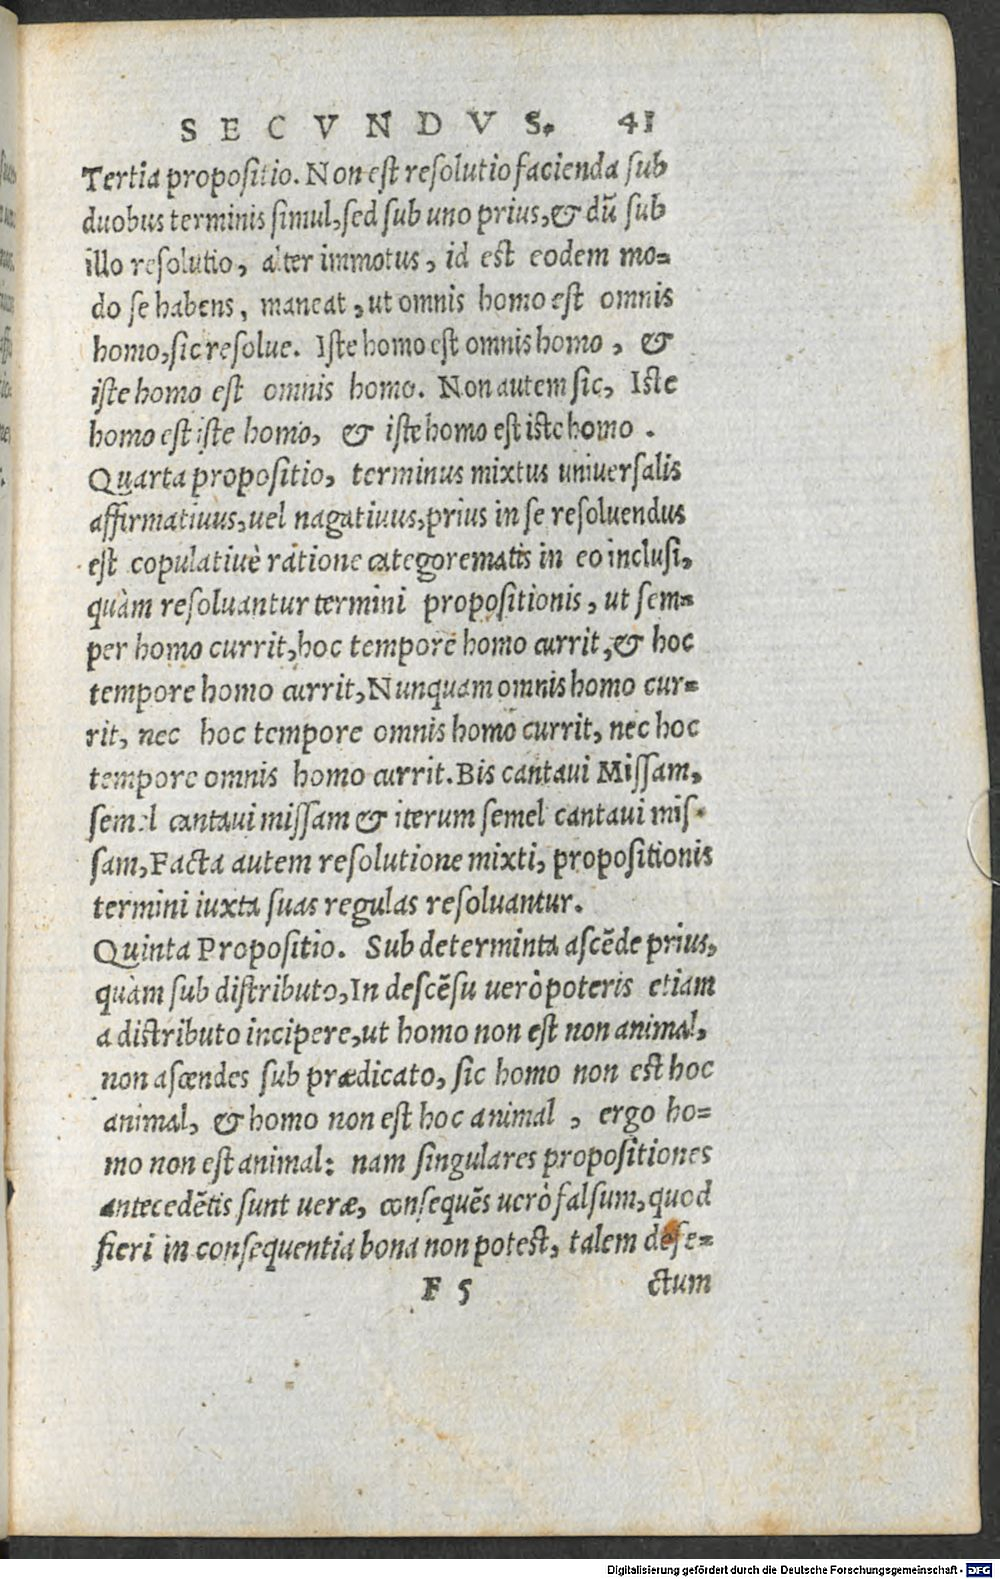 SECVNDVS. 41
Tertia propositio. Non est resolutio facienda sub
duobus terminis simul, sed sub uno prius, & dũ sub
illo resolutio, alter immotus, id est eodem mo=
do se habens, maneat, ut omnis homo est omnis
homo, sic resolue. Iste homo est omnis homo, &
iste homo est omnis homo. Non autem sic, Iste
homo est iste homo, & iste homo est iste homo.
Quarta propositio, terminus mixtus universalis
affirmatiuus, uel nagatiuus, prius in se resoluendus
est copulatiuè ratione categorematis in eo inclusi,
quàm resoluantur termini propositionis, ut sem=
per homo currit, hoc tempore homo currit, & hoc
tempore homo currit, Nunquam omnis homo cur=
rit, nec hoc tempore omnis homo currit, nec hoc
tempore omnis homo currit. Bis cantaui Missam,
semel cantaui missam & iterum semel cantaui mis-
sam, Facta autem resolutione mixti, propositionis
termini iuxta suas regulas resoluantur.
Quinta Propositio. Sub determinta ascẽde prius,
quàm sub distributo, In descẽsu uerò poteris etiam
a distributo incipere, ut homo non est non animal,
non ascendes sub prædicato, sic homo non est hoc
animal, & homo non est hoc animal, ergo ho=
mo non est animal: nam singulares propositiones
antecedẽtis sunt ueræ, consequẽs uerò falsum, quod
fieri in consequentia bona non potest, talem defe=
F 5 ctum
Digitalisierung gefördert durch die Deutsche Forschungsgemeinschaft - DFG